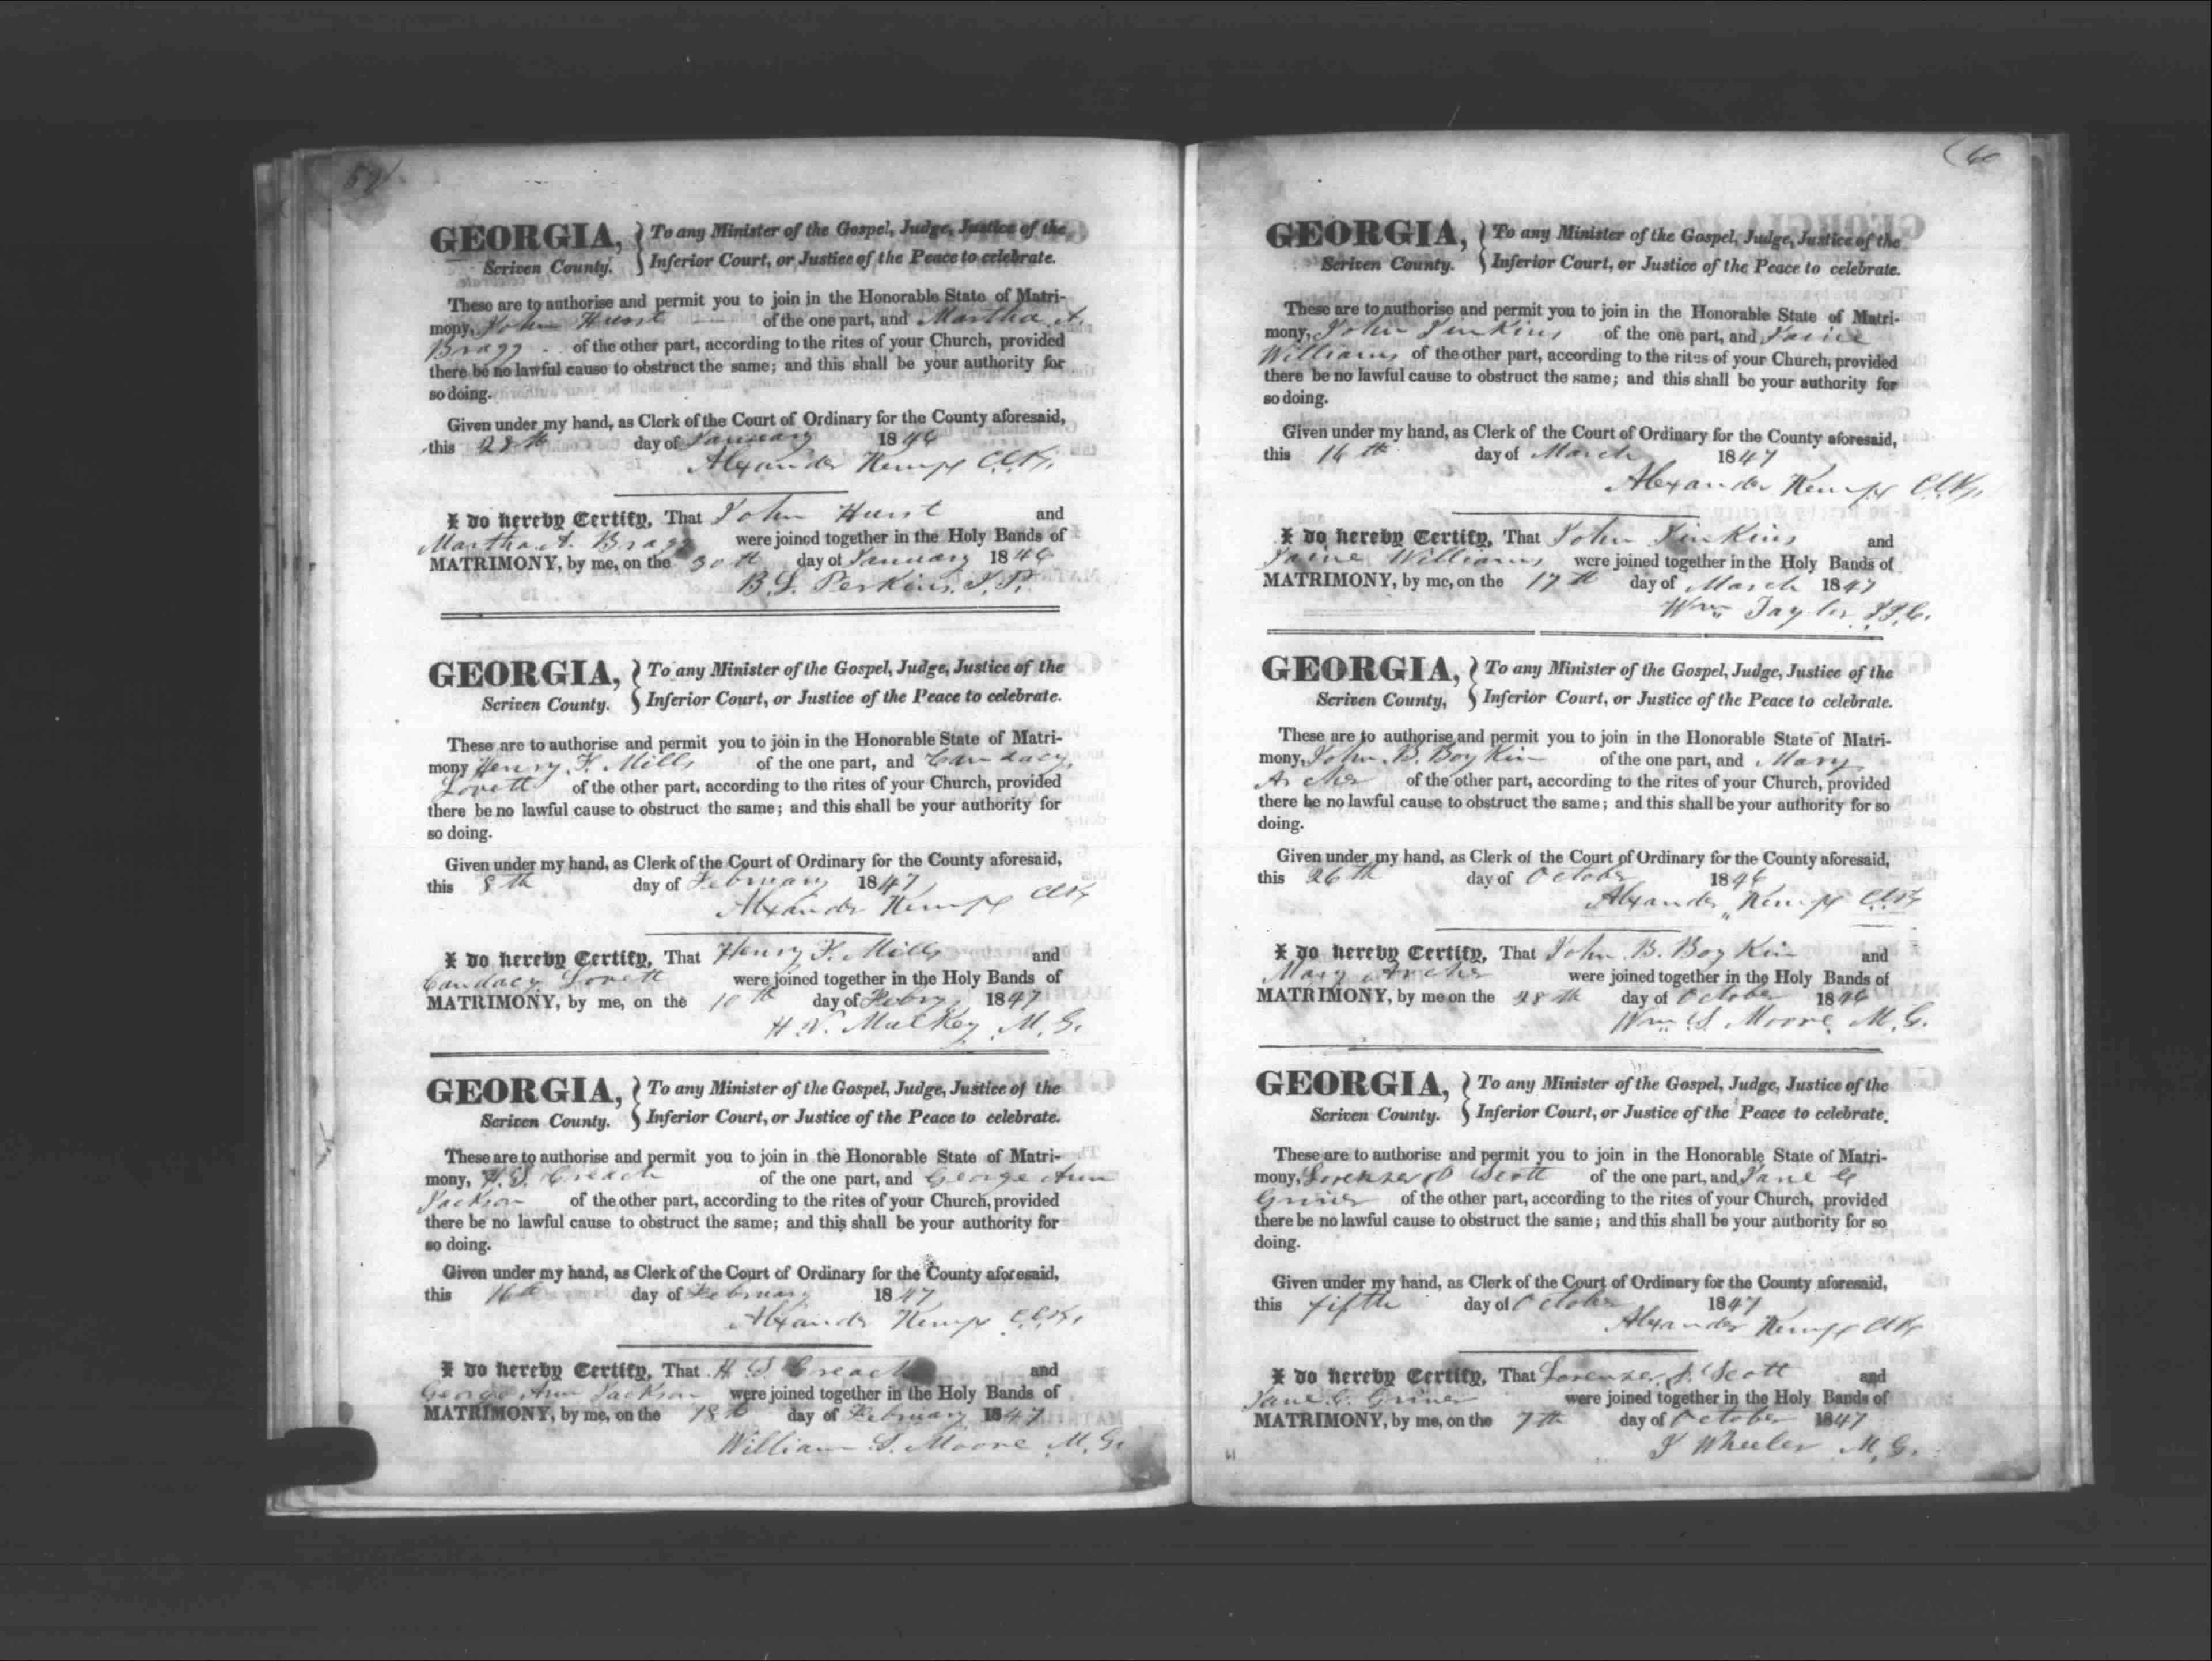 59
GEORGIA, To any Minister of the Gospel, Judge, Justice of the
Scriven County. Inferior Court, or Justice of the Peace to celebrate.
These are to authorise and permit you to join in the Honorable State of Matri-
mony, John Hurst of the one part, and Martha A.
Bragg of the other part, according to the rites of your Church, provided
there be no lawful cause to obstruct the same; and this shall be your authority for
so doing.
Given under my hand, as Clerk of the Court of Ordinary for the County aforesaid,
this 28th day of January 1846
Alexander Kemp Clk.
I do hereby Certify, That John Hurst and
Martha A. Bragg were joined together in the Holy Bands of
MATRIMONY, by me, on the 30th day of January 1846
B. L. Perkins, J. P.
GEORGIA, To any Minister of the Gospel, Judge, Justice of the
Scriven County. Inferior Court, or Justice of the Peace to celebrate.
These are to authorise and permit you to join in the Honorable State of Matri-
mony Henry F. Mills of the one part, and Candacy
Lovett of the other part, according to the rites of your Church, provided
there be no lawful cause to obstruct the same; and this shall be your authority for
so doing.
Given under my hand, as Clerk of the Court of Ordinary for the County aforesaid,
this 8th day of February 1847
Alexander Kemp Clk
I do hereby Certify, That Henry F. Mills and
Candacy Lovett were joined together in the Holy Bands of
MATRIMONY, by me, on the 10th day of Febry 1847
H. N. Mulkey, M. G.
GEORGIA, To any Minister of the Gospel, Judge, Justice of the
Scriven County. Inferior Court, or Justice of the Peace to celebrate.
These are to authorise and permit you to join in the Honorable State of Matri-
mony, H. S. Creach of the one part, and George Ann
Jackson of the other part, according to the rites of your Church, provided
there be no lawful cause to obstruct the same; and this shall be your authority for
so doing.
Given under my hand, as Clerk of the Court of Ordinary for the County aforesaid,
this 16th day of February 1847
Alexander Kemp Clk.
I do hereby Certify, That H. S. Creach and
George Ann Jackson were joined together in the Holy Bands of
MATRIMONY, by me, on the 18th day of February 1847
William S. Moore M. G.
60
GEORGIA, To any Minister of the Gospel, Judge, Justice of the
Scriven County. Inferior Court, or Justice of the Peace to celebrate.
These are to authorise and permit you to join in the Honorable State of Matri-
mony, John Jinkins of the one part, and Jaine
Williams of the other part, according to the rites of your Church, provided
there be no lawful cause to obstruct the same; and this shall be your authority for
so doing.
Given under my hand, as Clerk of the Court of Ordinary for the County aforesaid,
this 16th day of March 1847
Alexander Kemp Clk.
I do hereby Certify, That John Jinkins and
Jaine Williams were joined together in the Holy Bands of
MATRIMONY, by me, on the 17th day of March 1847
Wm Taylor J.I.C.
GEORGIA, To any Minister of the Gospel, Judge, Justice of the
Scriven County, Inferior Court, or Justice of the Peace to celebrate.
These are to authorise and permit you to join in the Honorable State of Matri-
mony, John B. Boykin of the one part, and Mary
Archer of the other part, according to the rites of your Church, provided
there be no lawful cause to obstruct the same; and this shall be your authority for so
doing.
Given under my hand, as Clerk of the Court of Ordinary for the County aforesaid,
this 26th day of October 1846
Alexander Kemp Clk
I do hereby Certify, That John B. Boykin and
Mary Archer were joined together in the Holy Bands of
MATRIMONY, by me on the 28th day of October 1846
Wm S. Moore M. G.
GEORGIA, To any Minister of the Gospel, Judge, Justice of the
Scriven County. Inferior Court, or Justice of the Peace to celebrate.
These are to authorise and permit you to join in the Honorable State of Matri-
mony, Scott of the one part, and Jane G
Griner of the other part, according to the rites of your Church, provided
there be no lawful cause to obstruct the same; and this shall be your authority for so
doing.
Given under my hand, as Clerk of the Court of Ordinary for the County aforesaid,
this fifth day of October 1847
Alexander Kemp Clk
I do hereby Certify, That Scott and
Jane G. Griner were joined together in the Holy Bands of
MATRIMONY, by me, on the 7th day of October 1847
J Wheeler M. G.
61